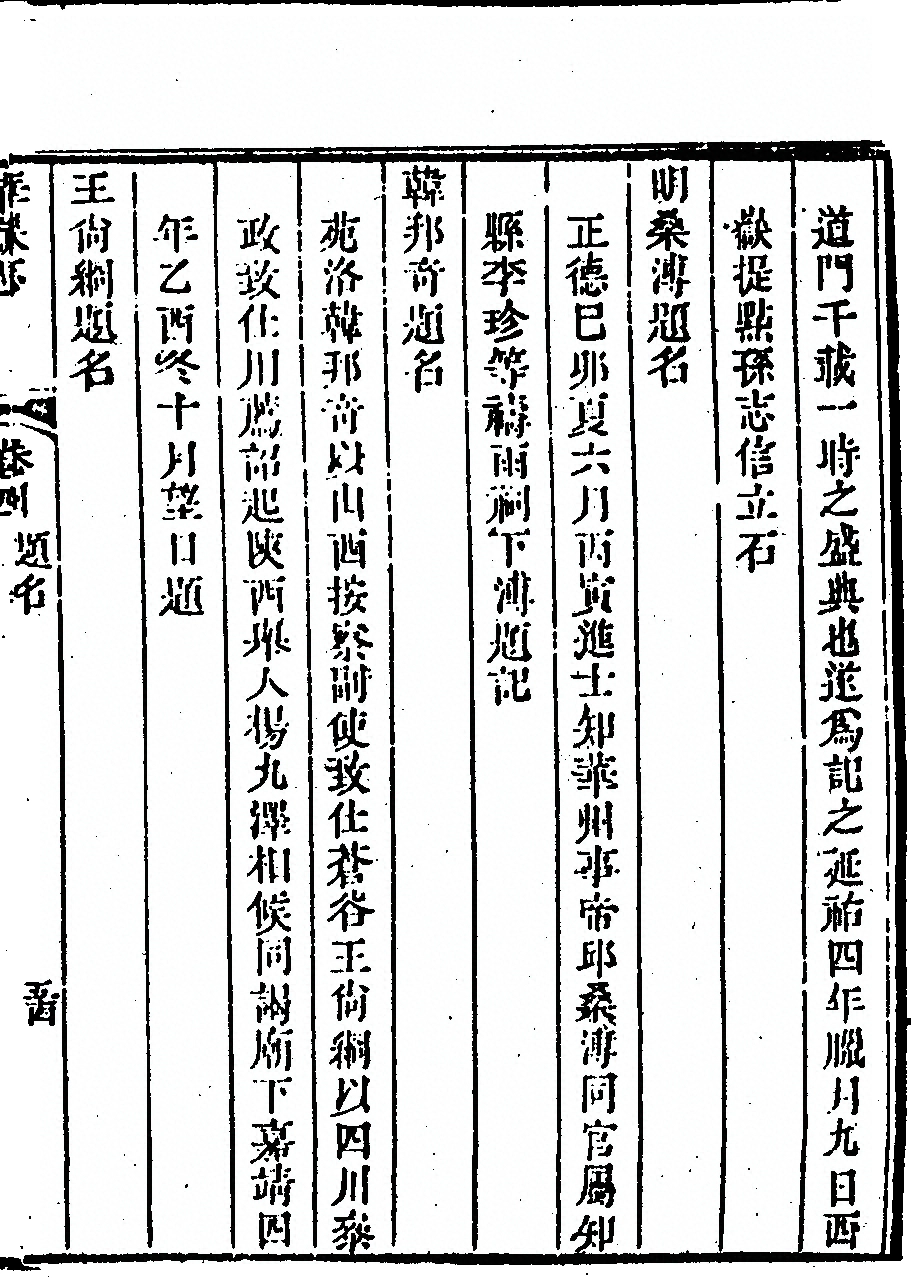 道門千載一時之盛典也遂爲記之延祐四年臘月九日西
嶽提點孫志信立石
明桑溥題名
正德己卯夏六月丙寅進士知華州事帝邱桑溥同官屬知
縣李珍等禱雨祠下溥題記
韓邦奇題名
苑洛韓邦奇以山西按察副使致仕蒼谷王尙絅以四川叅
政致仕川薦詔起陝西舉人楊九澤相候同謁廟下嘉靖四
年乙酉冬十月望日題
王尙絅題名
卷四
題名